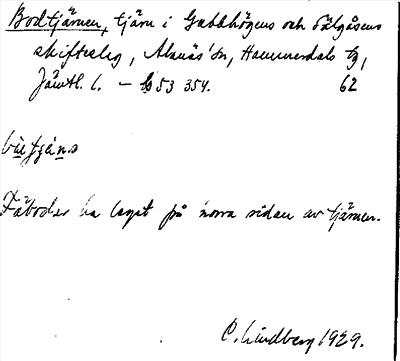 Bodtjärnen, tjärn i Gubbhögens och Sälgåsens
skifteslag, Alanäs' sn, Hammerdals tg,
Jämtl. l. – bs 53 354. 62
Fäbodar ha legat på norra sidan av tjärnen.
C. Lindberg 1929.